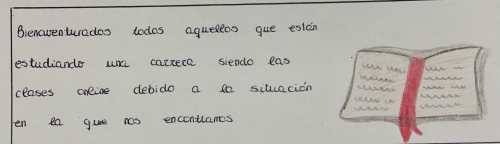 Bienaventurados todos aquellos que están
estudiando una carrera siendo las
clases online debido a la situación
en la que nos encontramos